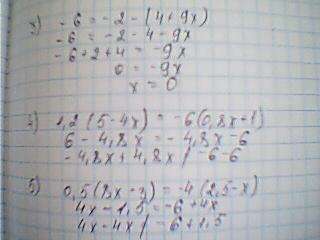 3) -6 = -2 - (4+9x)
-6 = -2 - 4 - 9x
-6+2+4 = -9x
0 = -9x
x = 0
4) 1,2 (5-4x) = -6 (0,8x+1)
6 - 4,8x = -4,8x-6
-4,8x+4,8x ≠ -6-6
5) 0,5 (8x-3) = -4 (2,5-x)
4x - 1,5 = -6 + 4x
4x - 4x ≠ -6 + 1,5